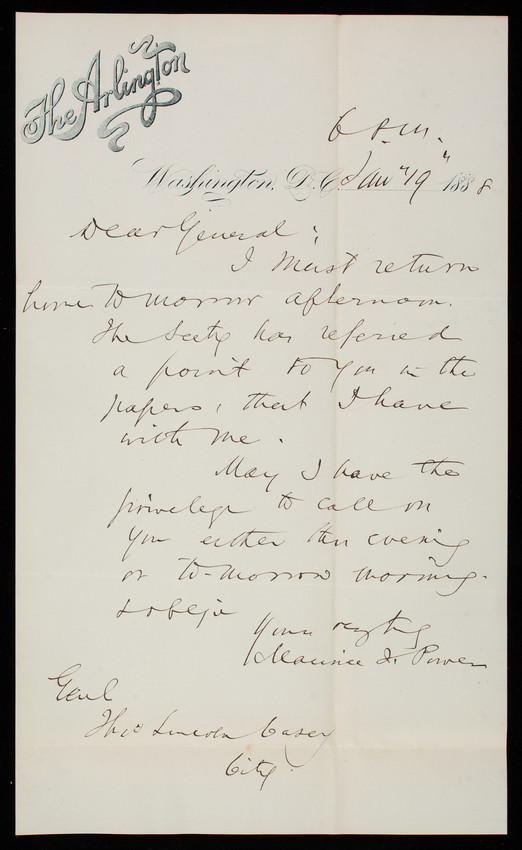 The Arlington
6 P.M.
Washington, D.C. Jany 19" 1888
Dear General;
I must return
home to morrow afternoon.
The Secty has referred
a point to you in the
papers, that I have
with me.
May I have the
privilege to call on
you either this evening
or to-morrow morning.
&
Yours resptfy
Maurice J. Power
Genl
Thos Lincoln Casey
City.